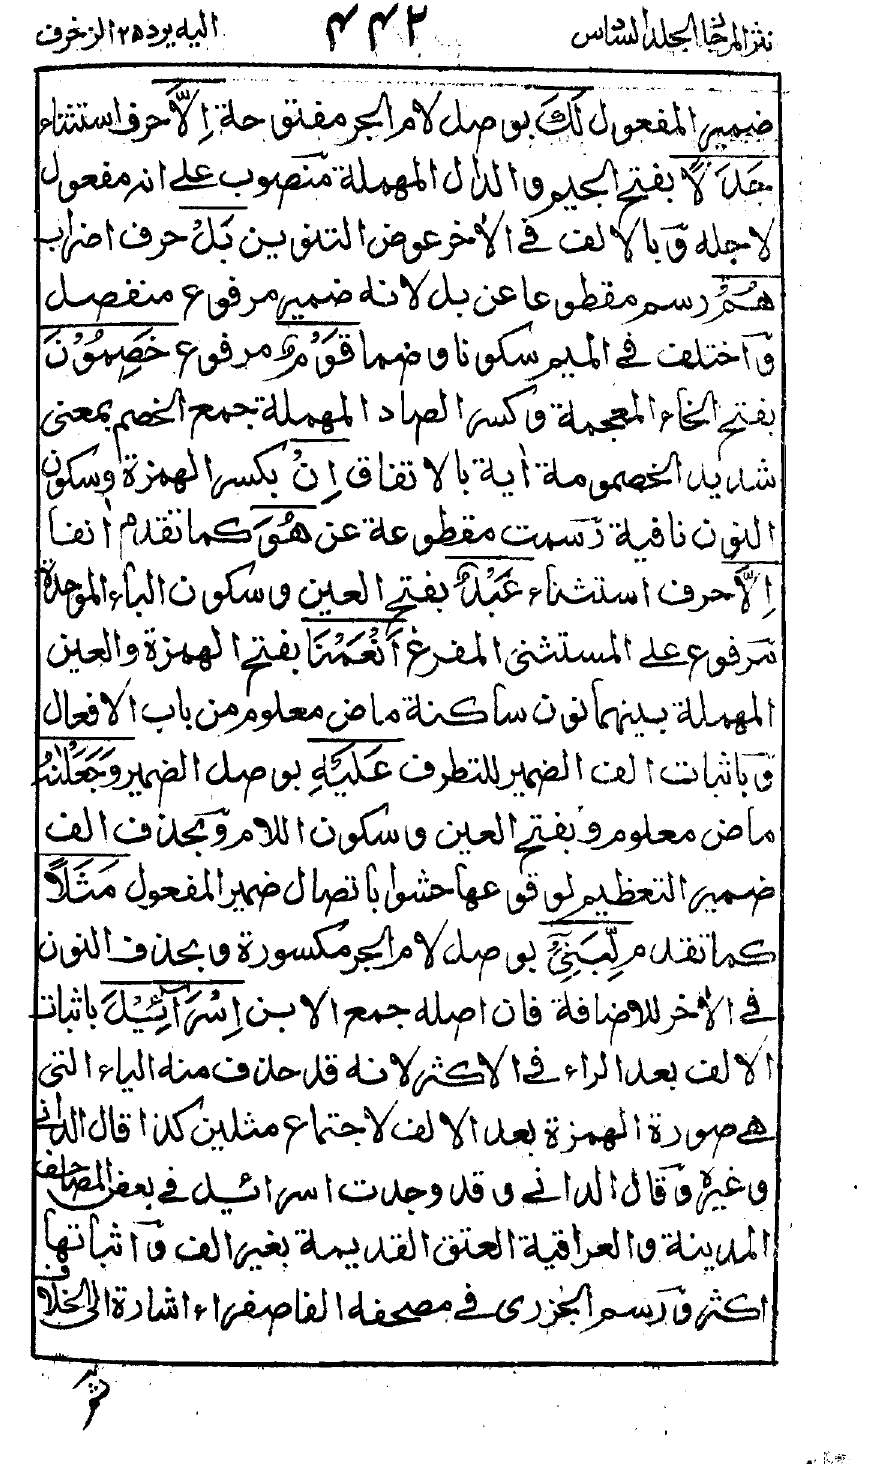 نثر المرجان المجلد السادس ۴۴۲ اليه يرد ۲۵ الزخرف
ضمير المفعول لَكَ بوصل لام الجر مفتوحة اِلَّا حرف استثناء
جَدَلًا بفتح الجيم والدال المهملة منصوب على انه مفعول
لاجله وبالالف في الاخر عوض التنوين بَلْ حرف اضراب
هُمْ رسم مقطوعا عن بل لانه ضمير مرفوع منفصل
واختلف في الميم سكونا وضما قَوْمٌ مرفوع خَصِمُوْنَ
بفتح الخاء المعجمة وكسر الصاد المهملة جمع الخصم بمعنى
شديد الخصومة اٰية بالاتفاق اِنْ بكسر الهمزة وسكون
النون نافية رسمت مقطوعة عن هُوَ كما تقدم اٰنفا
اِلَّا حرف استثناء عَبْدٌ بفتح العين وسكون الباء الموحدة
مرفوع على المستثنى المفرغ اَنْعَمْنَا بفتح الهمزة والعين
المهملة بينهما نون ساكنة ماض معلوم من باب الافعال
وباثبات الف الضمير للتطرف عَلَيْهِ بوصل الضمير وَجَعَلْنٰهُ
ماض معلوم وبفتح العين وسكون اللام وبحذف الف
ضمير التعظيم لوقوعها حشوا باتصال ضمير المفعول مَثَلًا
كما تقدم لِّبَنِيْٓ بوصل لام الجر مكسورة وبحذف النون
في الاٰخر للاضافة فان اصله جمع الابن اِسْرَآئِيْلَ باثبات
الالف بعد الراء في الاكثر لانه قد حذف منه الياء التى
هى صورة الهمزة بعد الالف لاجتماع مثلين كذا قال الدانى
وغيره وقال الدانى وقد وجدت اسرائيل في بعض المصاحف
المدينة والعراقية العتق القديمة بغير الف واثباتها
اكثر ورسم الجزرى في مصحفه الفا صفراء اشارة الى الخلاف